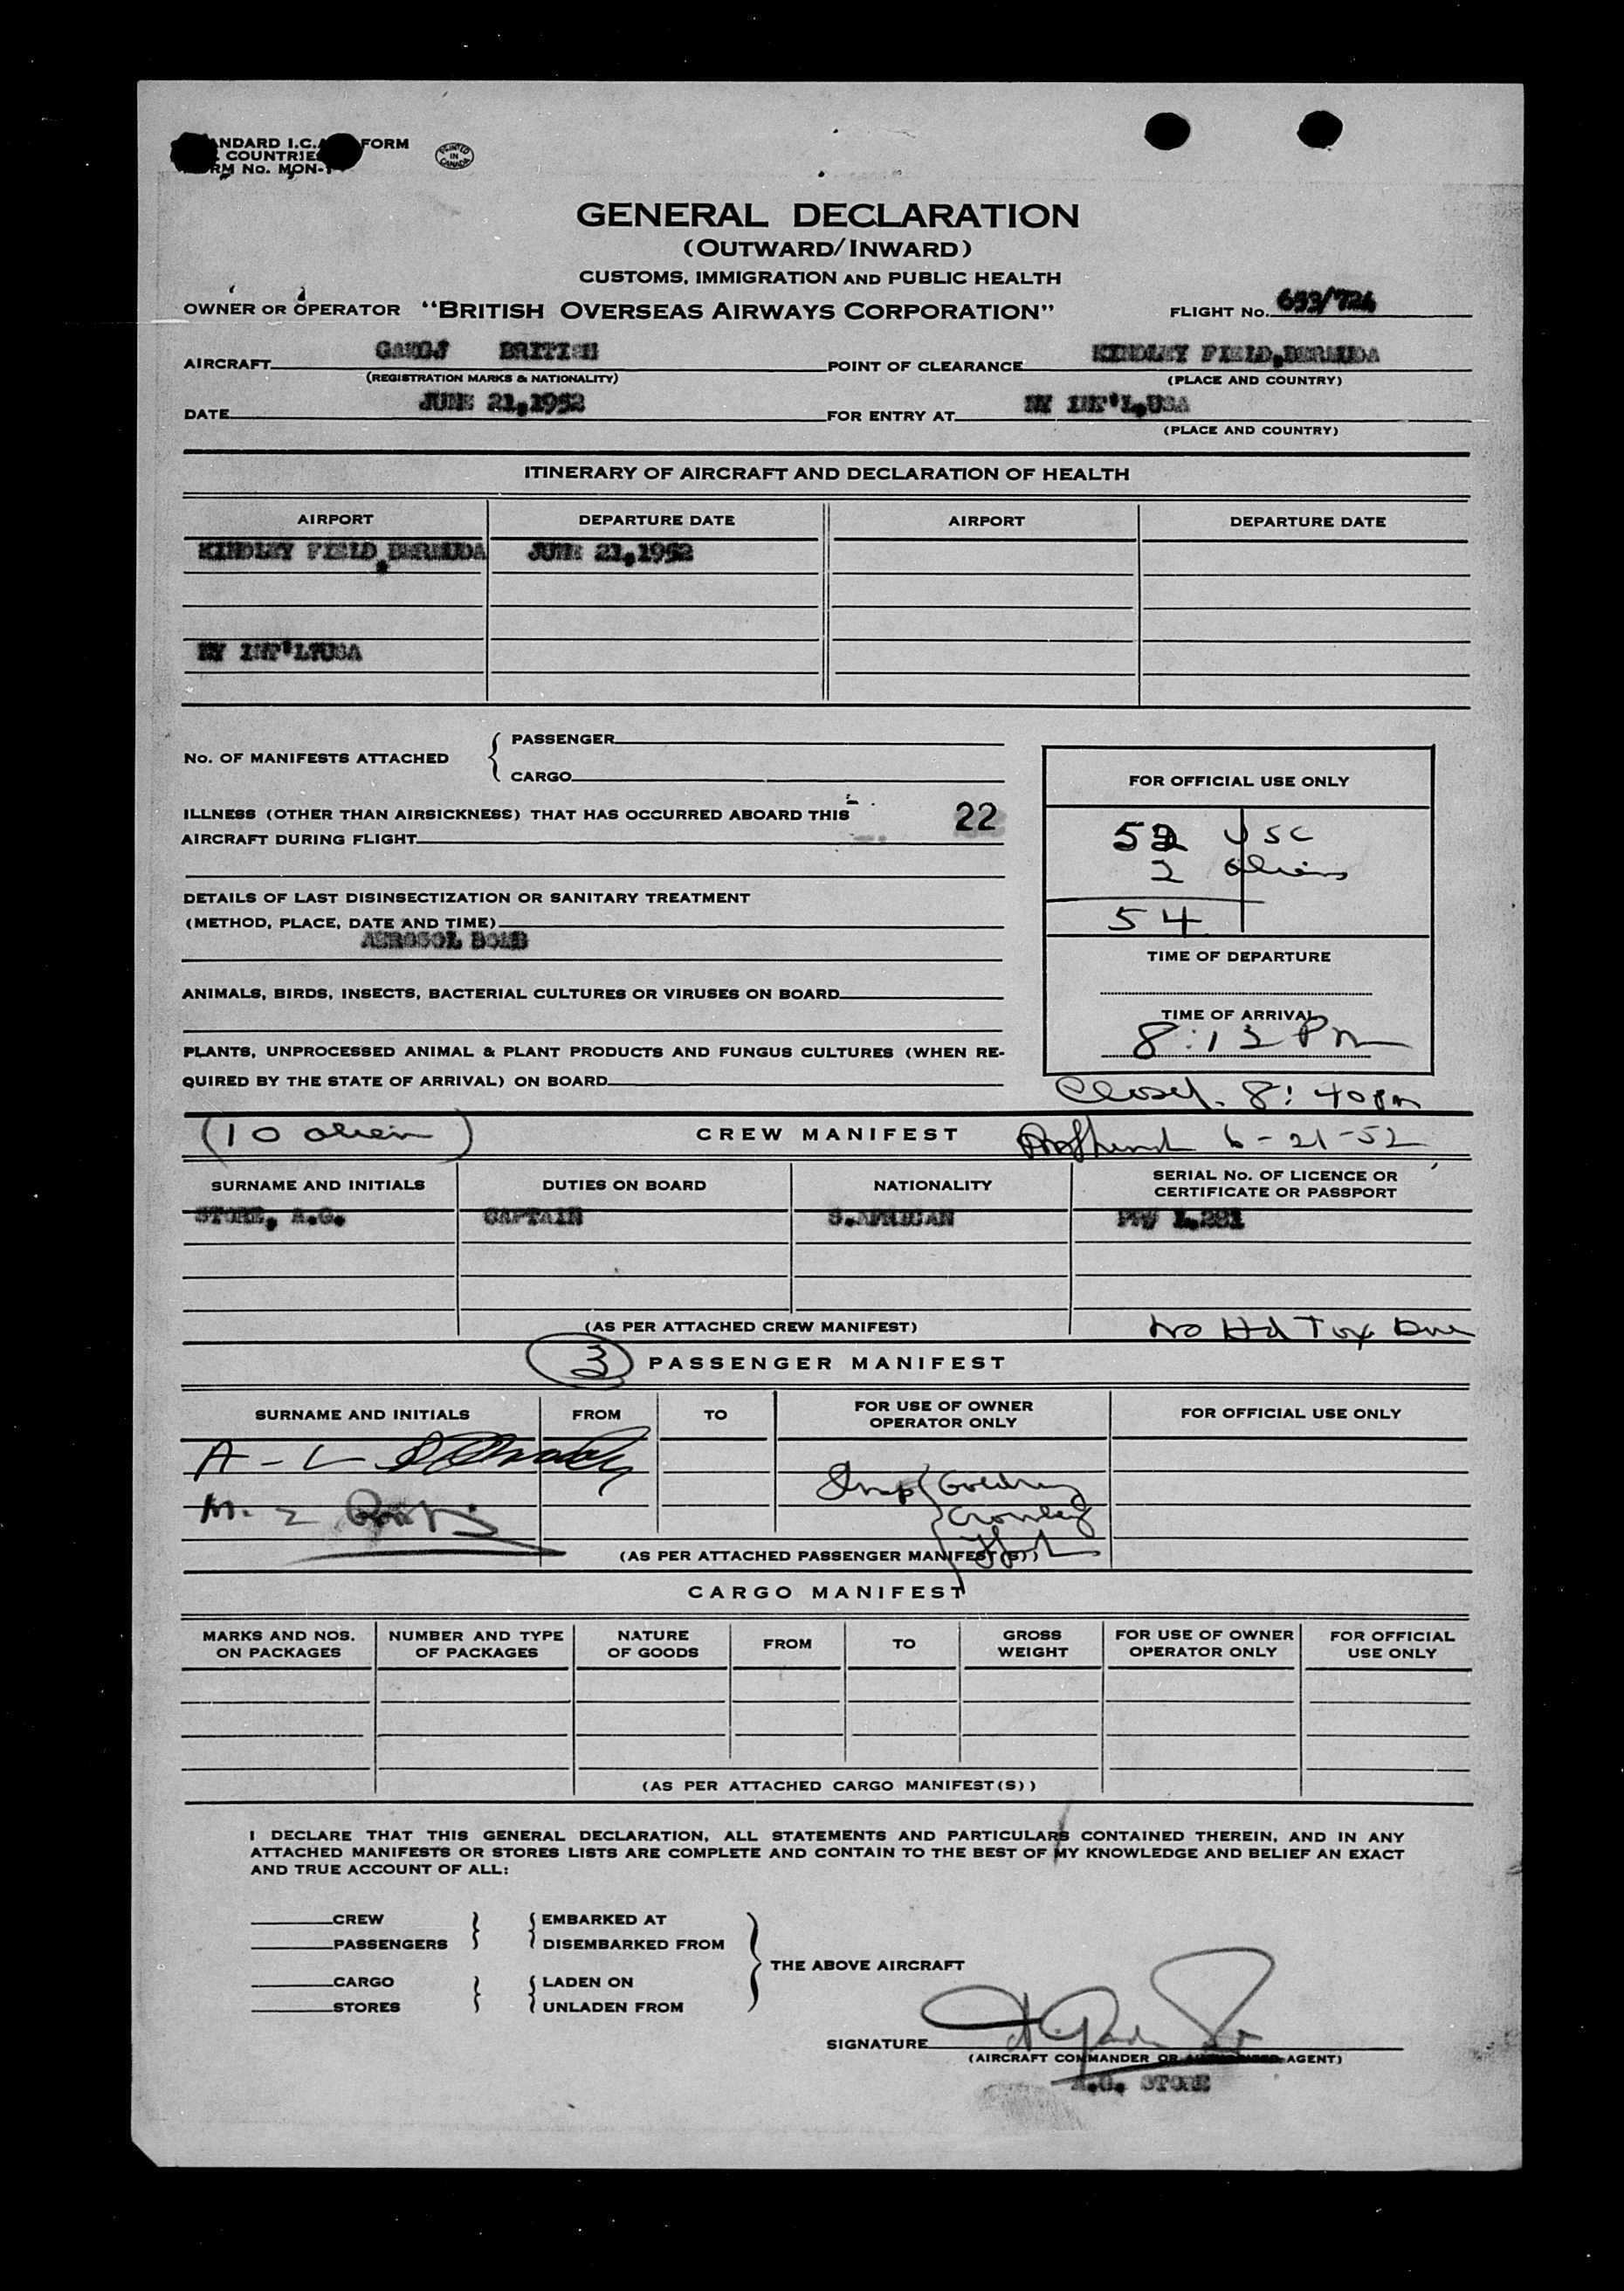 FORM
COUNTRIES
No. MON-
PRINTED IN CANADA
GENERAL DECLARATION
(OUTWARD/INWARD)
CUSTOMS, IMMIGRATION AND PUBLIC HEALTH
OWNER OR OPERATOR "BRITISH OVERSEAS AIRWAYS CORPORATION" FLIGHT No. 653/724
AIRCRAFT BRITISH POINT OF CLEARANCE KINDLEY FIELD,BERMUDA
(REGISTRATION MARKS & NATIONALITY) (PLACE AND COUNTRY)
DATE JUNE 21,1952 FOR ENTRY AT NY INT'L,USA
(PLACE AND COUNTRY)
ITINERARY OF AIRCRAFT AND DECLARATION OF HEALTH
AIRPORT DEPARTURE DATE AIRPORT DEPARTURE DATE
KINDLEY FIELD,BERMUDA JUNE 21,1952
NY INT'L,USA
No. OF MANIFESTS ATTACHED { PASSENGER
CARGO
FOR OFFICIAL USE ONLY
ILLNESS (OTHER THAN AIRSICKNESS) THAT HAS OCCURRED ABOARD THIS 22
AIRCRAFT DURING FLIGHT
52 USC
2 aliens
54
DETAILS OF LAST DISINSECTIZATION OR SANITARY TREATMENT
(METHOD, PLACE, DATE AND TIME)
AEROSOL BOMB
TIME OF DEPARTURE
ANIMALS, BIRDS, INSECTS, BACTERIAL CULTURES OR VIRUSES ON BOARD
TIME OF ARRIVAL
8:13 PM
PLANTS, UNPROCESSED ANIMAL & PLANT PRODUCTS AND FUNGUS CULTURES (WHEN RE-
QUIRED BY THE STATE OF ARRIVAL) ON BOARD
Closed. 8:40pm
(10 alien) CREW MANIFEST 6-21-52
SURNAME AND INITIALS DUTIES ON BOARD NATIONALITY SERIAL No. OF LICENCE OR
CERTIFICATE OR PASSPORT
STORE, A.G. CAPTAIN S.AFRICAN
(AS PER ATTACHED CREW MANIFEST) No Hd Tax Due
3 PASSENGER MANIFEST
SURNAME AND INITIALS FROM TO FOR USE OF OWNER
OPERATOR ONLY FOR OFFICIAL USE ONLY
A-L
Insp
Crowley
M.
(AS PER ATTACHED PASSENGER MANIFEST(S))
CARGO MANIFEST
MARKS AND NOS.
ON PACKAGES NUMBER AND TYPE
OF PACKAGES NATURE
OF GOODS FROM TO GROSS
WEIGHT FOR USE OF OWNER
OPERATOR ONLY FOR OFFICIAL
USE ONLY
(AS PER ATTACHED CARGO MANIFEST(S))
I DECLARE THAT THIS GENERAL DECLARATION, ALL STATEMENTS AND PARTICULARS CONTAINED THEREIN, AND IN ANY
ATTACHED MANIFESTS OR STORES LISTS ARE COMPLETE AND CONTAIN TO THE BEST OF MY KNOWLEDGE AND BELIEF AN EXACT
AND TRUE ACCOUNT OF ALL:
CREW EMBARKED AT
PASSENGERS DISEMBARKED FROM
THE ABOVE AIRCRAFT
CARGO LADEN ON
STORES UNLADEN FROM
SIGNATURE
(AIRCRAFT COMMANDER OR AUTHORIZED AGENT)
A.G. STORE